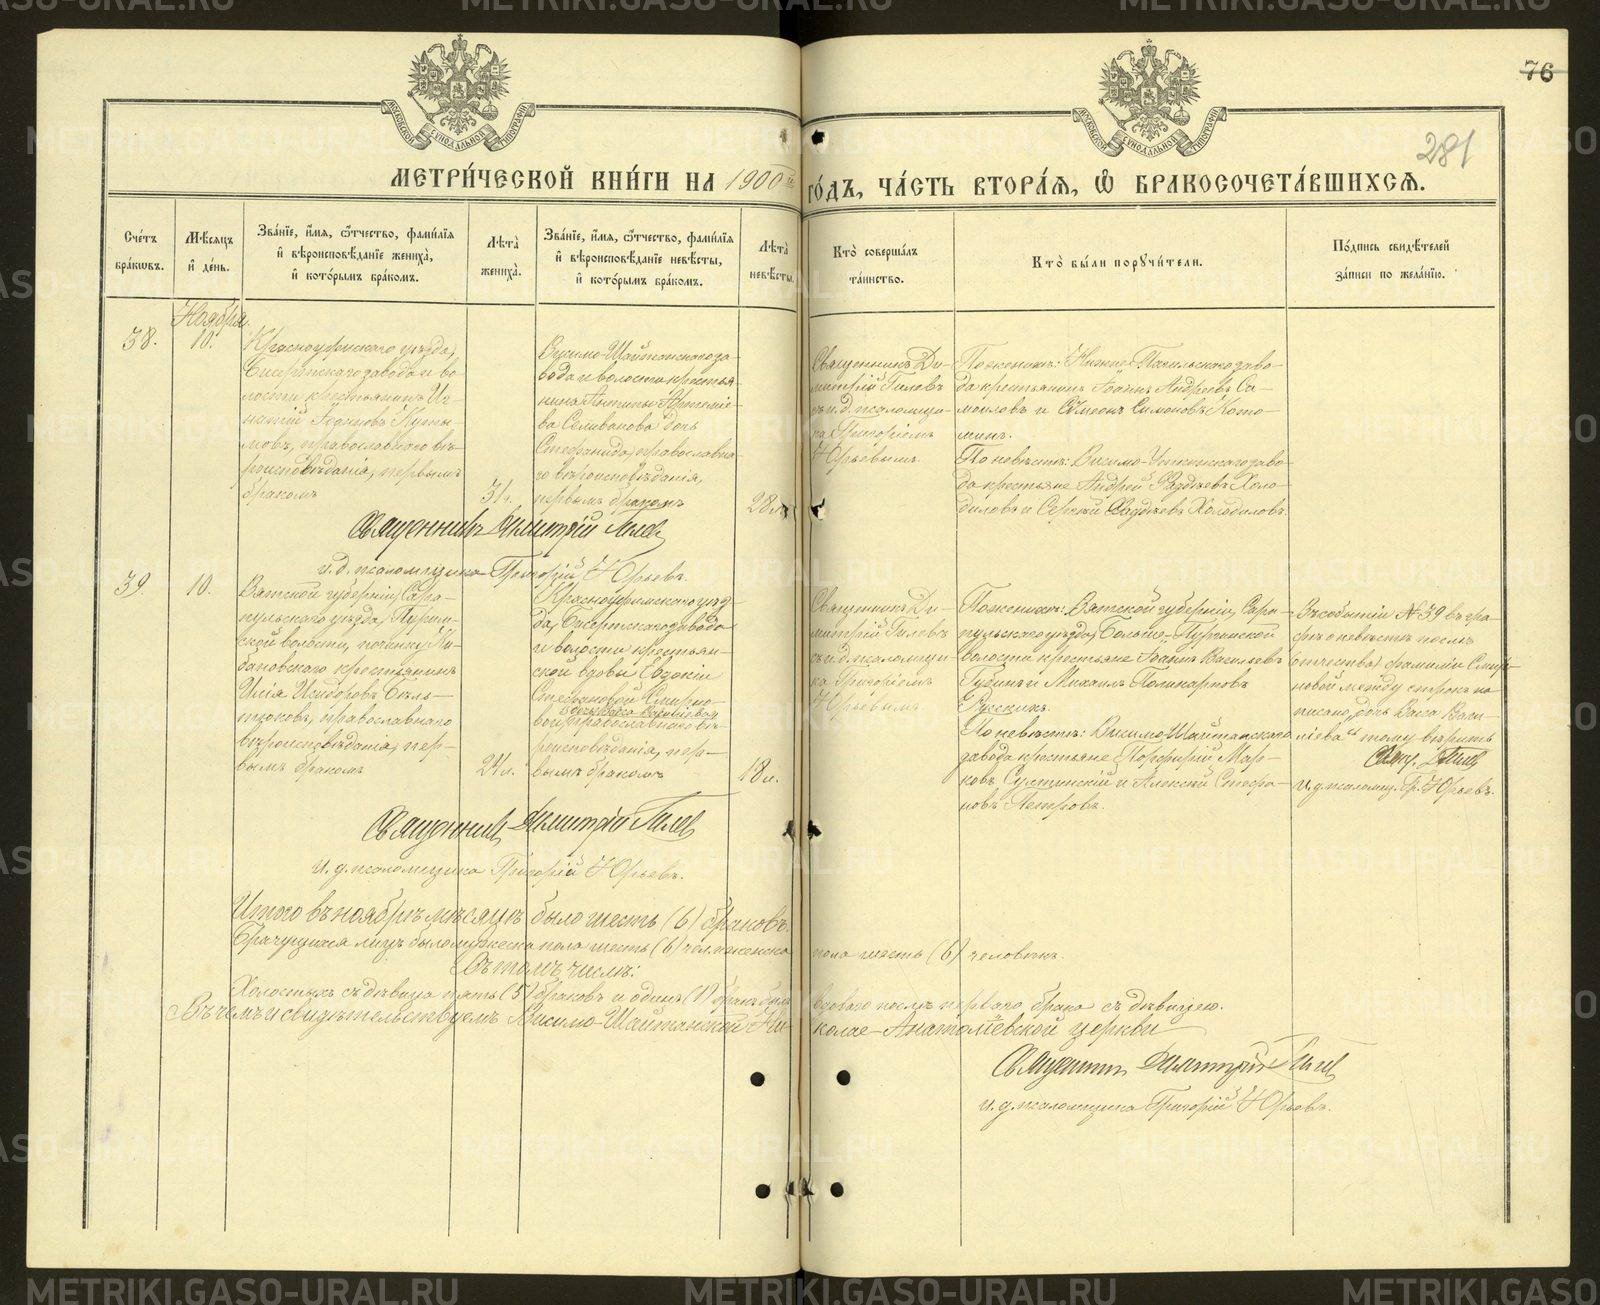 76
281
МЕТРИ́ЧЕСКОЙ КНИ́ГИ НА 1900й ГО́ДЪ, ЧА́СТЬ ВТОРА́Я, Ѽ БРАКОСОЧЕТА́ВШИХСЯ.
Сче́тъ
бра́кѡвъ.
Мѣ́сяцъ
и҆ де́нь.
Зва́нїе, и҆́мя, ѻ҆́тчество, фами́лїя
и҆ вѣроисповѣ́данїе жениха̀,
и҆ кото́рымъ бра́комъ.
Лѣ́та
жениха̀.
Зва́нїе, и҆́мя, ѻ҆́тчество, фами́лїя
и҆ вѣроисповѣ́данїе невѣ́сты,
и҆ кото́рымъ бра́комъ.
Лѣ́та
невѣ́сты.
Кто̀ соверша́лъ
та́инство.
Кто̀ бы́ли поручи́тели.
По́дпись свидѣ́телей
за́писи по жела́нїю.
38.
Ноября
10.
Красноуфимскаго уѣзда,
Бисертскаго завода и во-
лости крестьянинъ Иг-
натій Іоанновъ Куты-
мовъ, православнаго вѣ-
роисповѣданія, первымъ
бракомъ
31 г.
Висимо-Шайтанскаго за-
вода и волости крестья-
нина Антипы Артеміе-
ва Селиванова дочь
Стефанида, православна-
го вѣроисповѣданія,
первымъ бракомъ
28 л.
Священникъ Ди-
митрій Гилевъ
съ и. д. псаломщи-
ка Григоріемъ
Юрьевымъ.
По женихѣ: Нижне-Тагильскаго заво-
да крестьянинъ Іоаннъ Андреевъ Са-
мойловъ и Сѵмеонъ Симоновъ Кото-
минъ.
По невѣстѣ: Висимо-Уткинскаго заво-
да крестьяне Андрей Фаддѣевъ Холо-
диловъ и Сергій Фаддѣевъ Холодиловъ.
Священникъ Димитрій Гилевъ
и. д. псаломщика Григорій Юрьевъ.
39.
10.
Вятской губерніи, Сара-
пульскаго уѣзда, Пургин-
ской волости, починку Ки-
бановскаго крестьянинъ
Илія Исидоровъ Бѣль-
тюковъ, православнаго
вѣроисповѣданія, пер-
вымъ бракомъ
24 л.
Красноуфимскаго уѣз-
да, Бисертскаго завода
и волости крестьян-
ской вдовы Евдокіи
Стефановой Смирно-
дочь Васса Васильева
вой, православнаго вѣ-
роисповѣданія, пер-
вымъ бракомъ
18 л.
Священникъ Ди-
митрій Гилевъ
съ и. д. псаломщи-
ка Григоріемъ
Юрьевымъ.
По женихѣ: Вятской губерніи, Сара-
пульскаго уѣзда, Больше-Пургинской
волости крестьяне Іоаннъ Васильевъ
Губинъ и Михаилъ Поликарповъ
Русскихъ.
По невѣстѣ: Висимо-Шайтанскаго
завода крестьяне Порфирій Мар-
ковъ Сулинскій и Алексій Стефа-
новъ Петровъ.
Въ событіи № 39 въ гра-
фѣ о невѣстѣ послѣ
отчества, фамиліи Смир-
новой между строкъ на-
писано „дочь Васса Васи-
ліева“ тому вѣрить
Свящ. Д. Гилев
И. д. псаломщ. Гр. Юрьевъ.
Священникъ Димитрій Гилев
и. д. псаломщика Григорій Юрьевъ.
Итого въ ноябрѣ мѣсяцѣ было шесть (6) браковъ.
Брачущихся лицъ было мужеска пола шесть (6) чел. женска пола шесть (6) человѣкъ.
Въ томъ числѣ:
Холостыхъ съ дѣвица пять (5) браковъ и одинъ (1) бракъ былъ вдоваго послѣ перваго брака съ дѣвицею.
Въ чемъ и свидѣтельствуемъ Висимо-Шайтанской Николае-Анатоліевской церкви
Священникъ Димитрій Гилев
и. д. псаломщика Григорій Юрьевъ.
METRIKI.GASO-URAL.RU